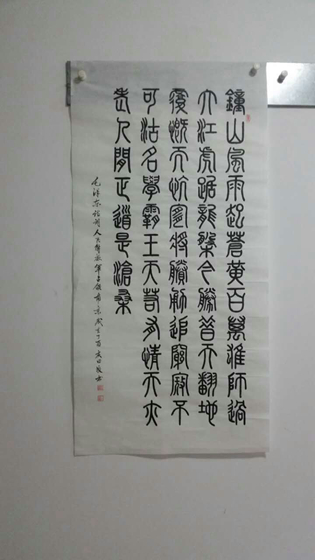 鐘山風雨起蒼黃百萬雄師過
大江虎踞龍槃今勝昔天翻地
覆慨而慷宜將賸勇追窮寇不
可沽名學霸王天若有情天亦
老人間正道是滄桑
毛澤東詩詞人民解放軍占領南京